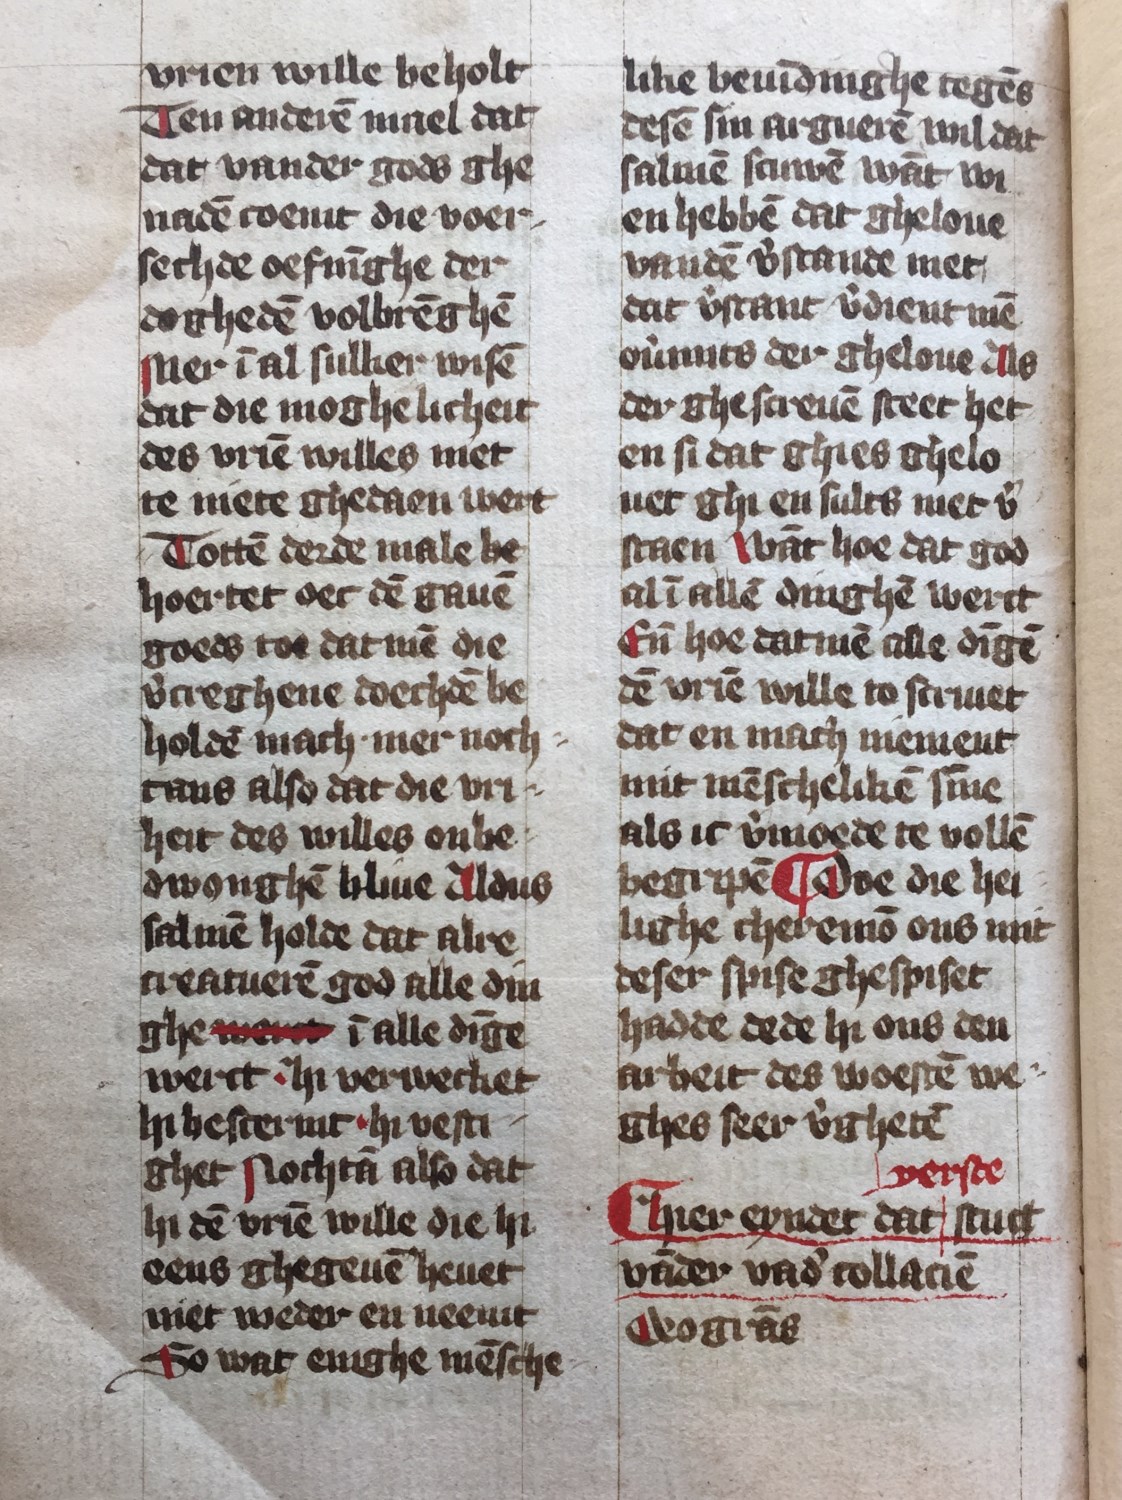 vrien wille beholt
Ten anderē mael dat
dat vander gods ghe
nadē coemt die voer-
sechde oefnīghe der
doghedē volbrēghē
Mer ī al sulker wisē
dat die moghelicheit
des vriē willes niet
te niete ghedaen wert
Tottē derde male be
hoertet oec dē gauē
goeds toe datmē die
v̉creghene doechdē be
holdē mach mer noch-
tans also dat die vri-
heit des willes onbe-
dwonghē bliue Aldus
salmē holdē dat alre
creatuerē god alle din
ghe werct ī alle dīge
werct · hi verwecket
hi bestermt · hi vesti-
ghet Nochtā also dat
hi dē vriē wille die hi
eens ghegeuē heuet
niet weder en neemt
So wat enighe mēsche-
like beuīdinghe tegēs
desē sin arguerē wil dat
salmē scuwē wāt wi
en hebbē dat gheloue
vandē v̉stande niet
dat v̉stant v̉dient mē
oủmits der gheloue Als
der ghescreuē steet het
en si dat ghies ghelo
uet ghi en sults niet v̉
staen Wāt hoe dat god
al ī allē dinghē werct
Eñ hoe datmē alle dīgē
dē vriē wille to scriuet
dat en mach niement
mit mēschelikē sīne
als ic v̉moede te vollē
begripē Doe die hei-
lighe cheremō ons mit
deser spise ghespiset
hadde dede hi ons den
arbeit des woestē we-
ghes seer v̉ghetē
verste
hier eyndet dat stuct
vāder vad̉ collaciē
Deo grās